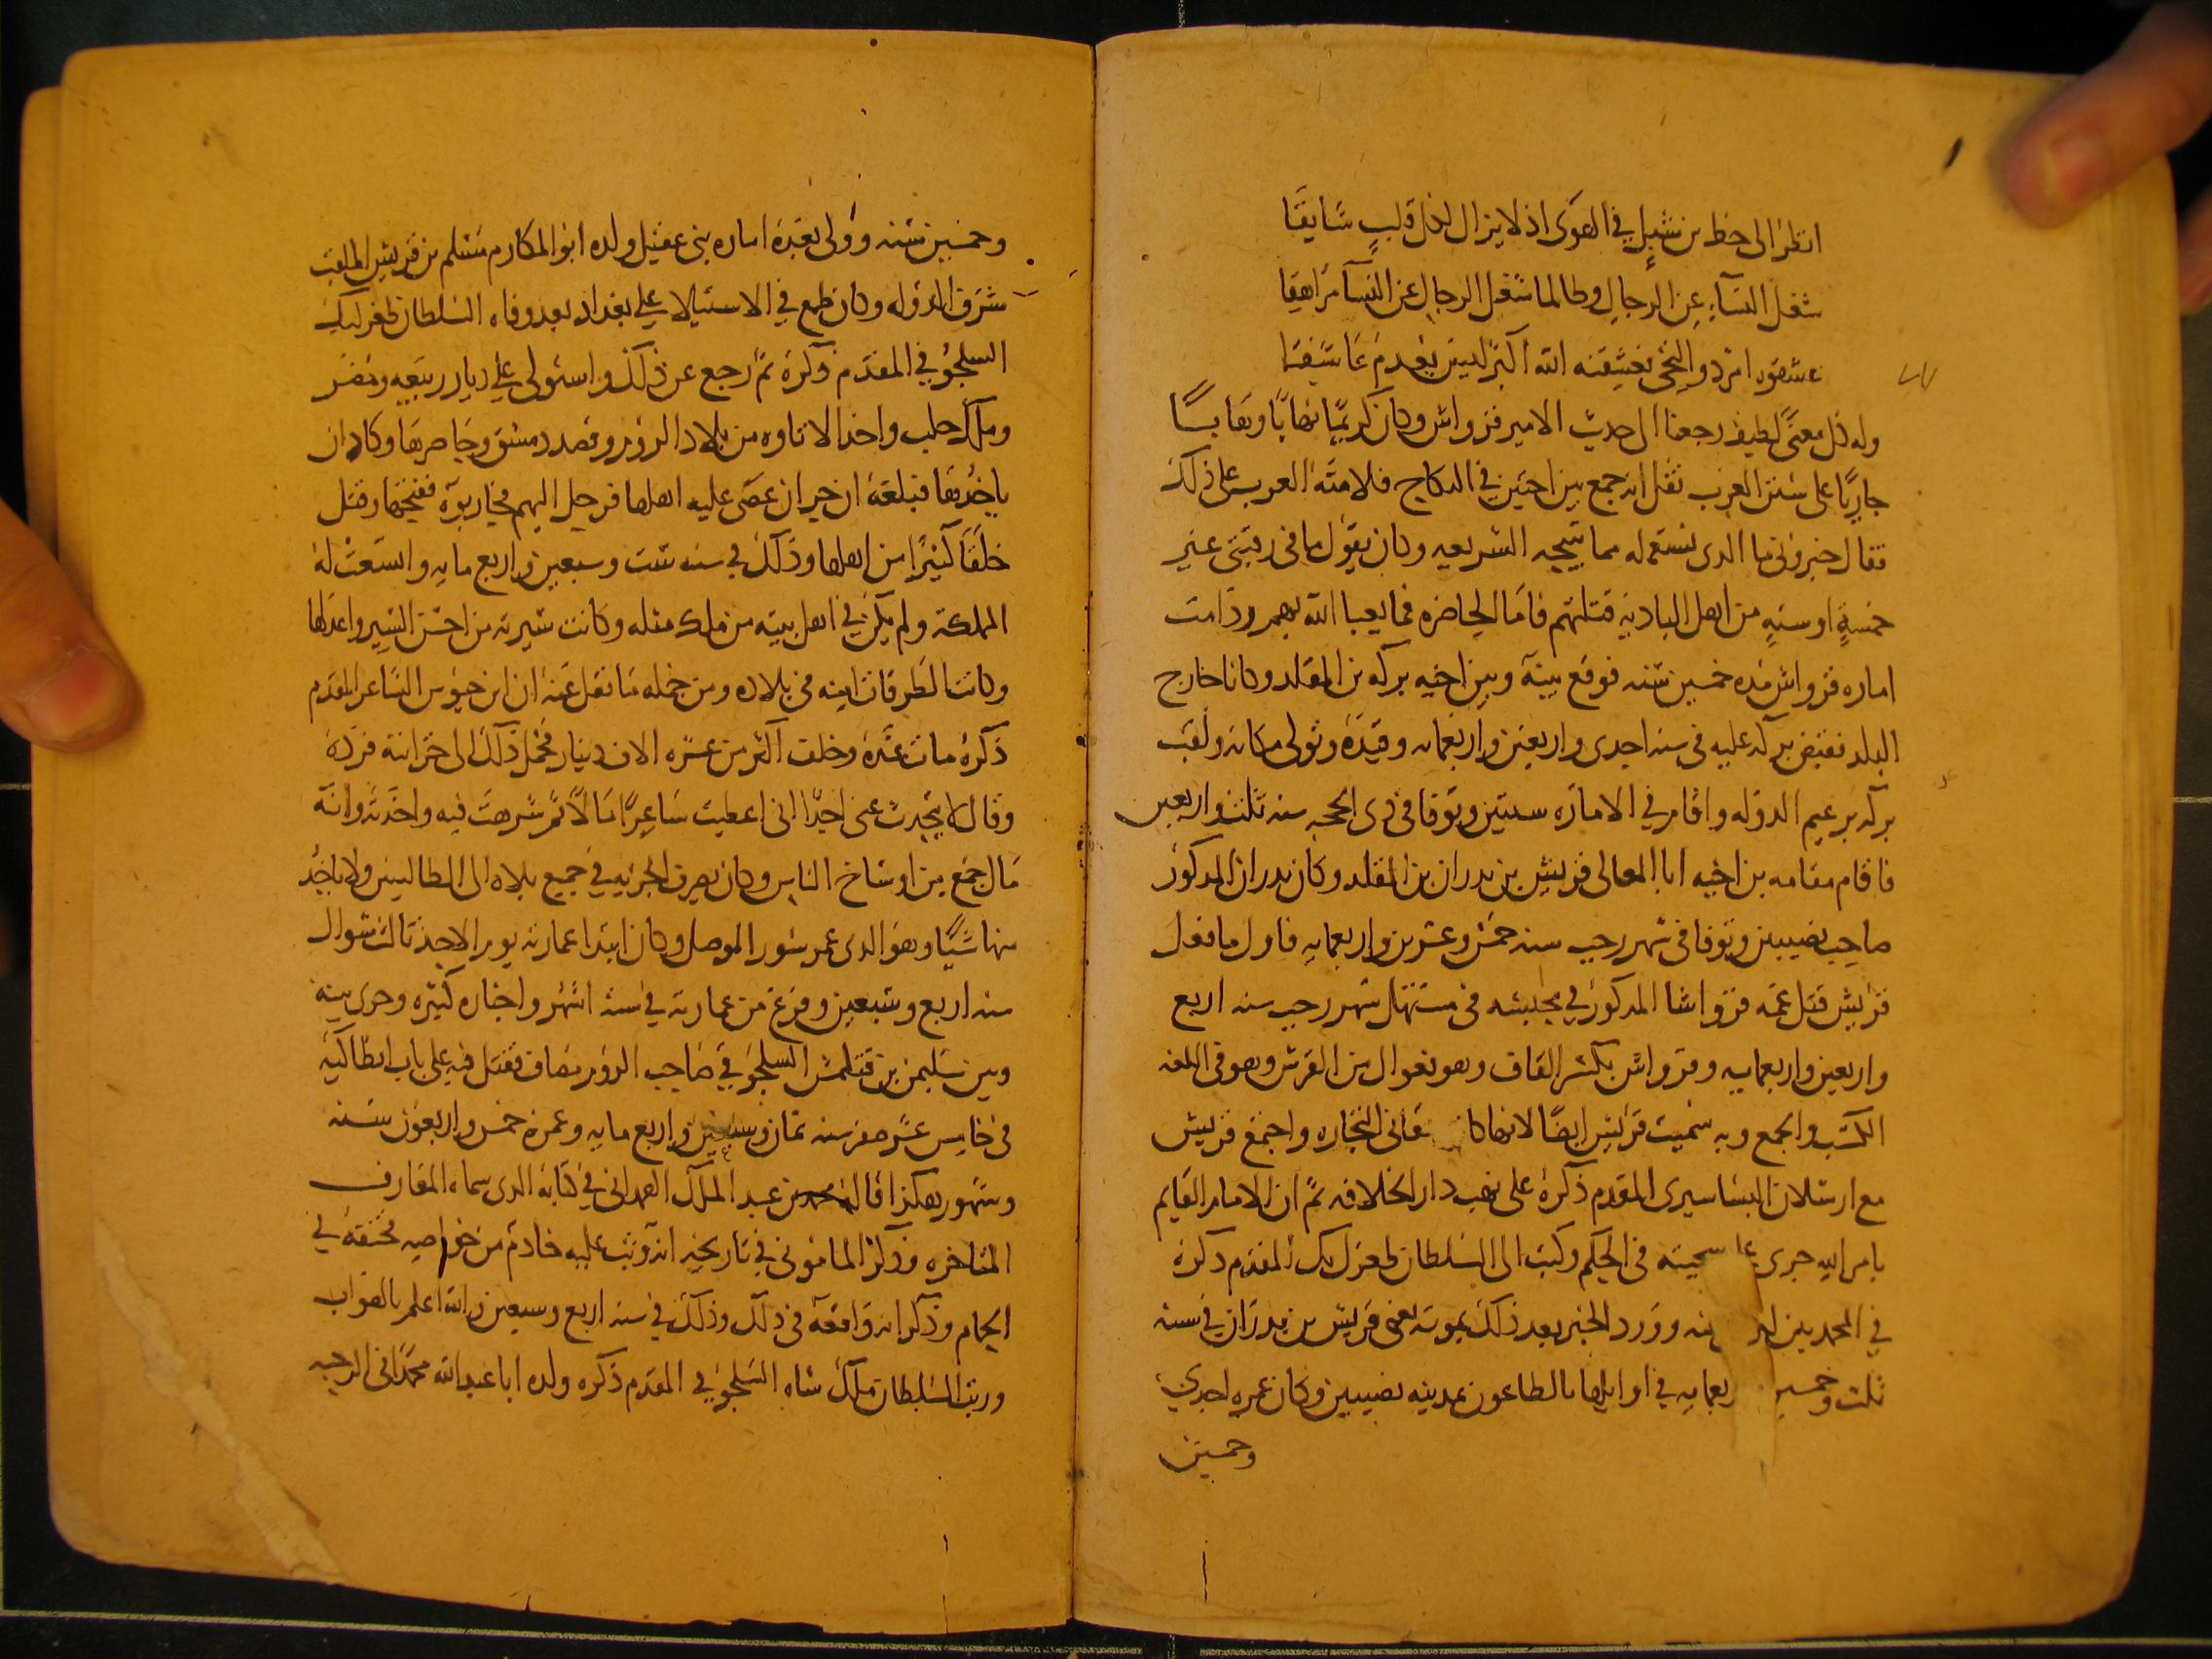 انظر الى حظ بن شبل في الهوى اذ لا يزال لكل قلب شايقا
شغل النساء عن الرجال وطالما شغل الرجال عن النسا مراهقا
عشقوه امرد والتحى فعشقنه الله اكبر ليس يعدم عاشقا
وله كل معنى لطيف رجعنا الى حديث الامير قرواش وكان كريما نهابا وهابا
جاريا على سنن العرب نقل انه جمع بين اختين في النكاح فلامته العرب على ذلك
فقال خبروني ما الذى نستعمله مما تبيحه الشريعه وكان يقول ما في رقبتي غير
خمسةٍ او ستةٍ من اهل الباديه قتلتهم فاما الحاضره فما يعبا الله بهم ودامت
اماره قرواش مده خمسين سنه فوقع بينه وبين اخيه بركه بن المقلد وكانا خارج
البلد فقبض بركه عليه في سنه احدى واربعين واربعمايه وقيده وتولى مكانه ولقب
بركه بزعيم الدوله واقام في الاماره سنتين وتوفا في ذى الحجه سنه ثلث واربعين
فاقام مقامه بن اخيه ابا المعالى قريش بن بدران بن المقلد وكان بدران المذكور
صاحب نصيبين وتوفا في شهر رجب سنه خمس وعشرين واربعمايه فاول ما فعل
قريش قتل عمه قرواشا المذكور في مجلسه في مستهل شهر رجب سنه اربع
واربعين واربعمايه وقرواش بكسر القاف وهو فعوال من القرش وهو في اللغه
الكسب والجمع وبه سميت قريش ايضا لانها كانت تعانى التجاره واجتمع قريش
مع ارسلان البساسيرى المقدم ذكره على نهب دار الخلافه ثم ان الامام القايم
بامر الله جرى على سجيته في الحلم وكتب الى السلطان طغرلبك المقدم ذكره
في المحمدين ... ووردا الخبر بعد ذلك بموته يعنى قريش بن بدران في سنه
ثلث وخمسين واربعمايه في اوايلها بالطاعون بمدينه نصيبين وكان عمره احدي
وخمسين
وخمسين سنه وولى بعده اماره بنى عقيل ولده ابو المكارم مسلم بن قريش الملقب
شرف الدوله وكان طمع في الاستيلا على بغداد بعد وفاه السلطان طغرلبك
السلجوقي المقدم ذكره ثم رجع عن ذلك واستولى على ديار ربيعه ومضر
وملك حلب واخذ الاتاوه من بلاد الروم وقصد دمشق وحاصرها وكاد ان
ياخذها فبلغه ان حران عصى عليه اهلها فرحل اليهم فحاربوه ففتحها وقتل
خلقا كثيرا من اهلها وذلك في سنه ست وسبعين واربع مايه واتسعت له
المملكه ولم يكن في اهل بيته من ملك مثله وكانت سيرته من احسن السير واعدلها
وكانت الطرقات امنه في بلاده ومن جمله ما نقل عنه ان ابن حيوس الشاعر المقدم
ذكره مات عنده وخلف اكثر من عشره الاف دينار فحمل ذلك الى خزانته فرده
وقال لا يتحدث عنى احدا انى اعطيت شاعرا مالا ثم شرهت فيه واخذته وانه
مال جمع من اوساخ الناس وكان يصرف الجزيه في جميع بلاده الى الطالبيين ولا ياخذ
منها شيا وهو الذى عمر سور الموصل وكان ابتدا عمارته يوم الاحد ثالث شوال
سنه اربع وسبعين وفرغ من عمارته في ستة اشهر واخباره كثيره وجرى بينه
وبين سليمن بن قتلمش السلجوقي صاحب الروم مصاف فقتل فيه على باب انطاكيه
في خامس عشر صفر سنه ثمان وسبعين واربع مايه وعمره خمس واربعون سنه
وشهور هكذا قاله محمد بن عبد الملك الهمدانى في كتابه الذى سماه المعارف
المتاخره وذكر المامونى في تاريخه انه وثب عليه خادم من خواصه فخنقه في
الحمام وذكر انه واقعه في ذلك وذلك في سنه اربع وسبعين والله اعلم بالصواب
ورتب السلطان ملك شاه السلجوقي المقدم ذكره ولده ابا عبد الله محمدا في الرحبه